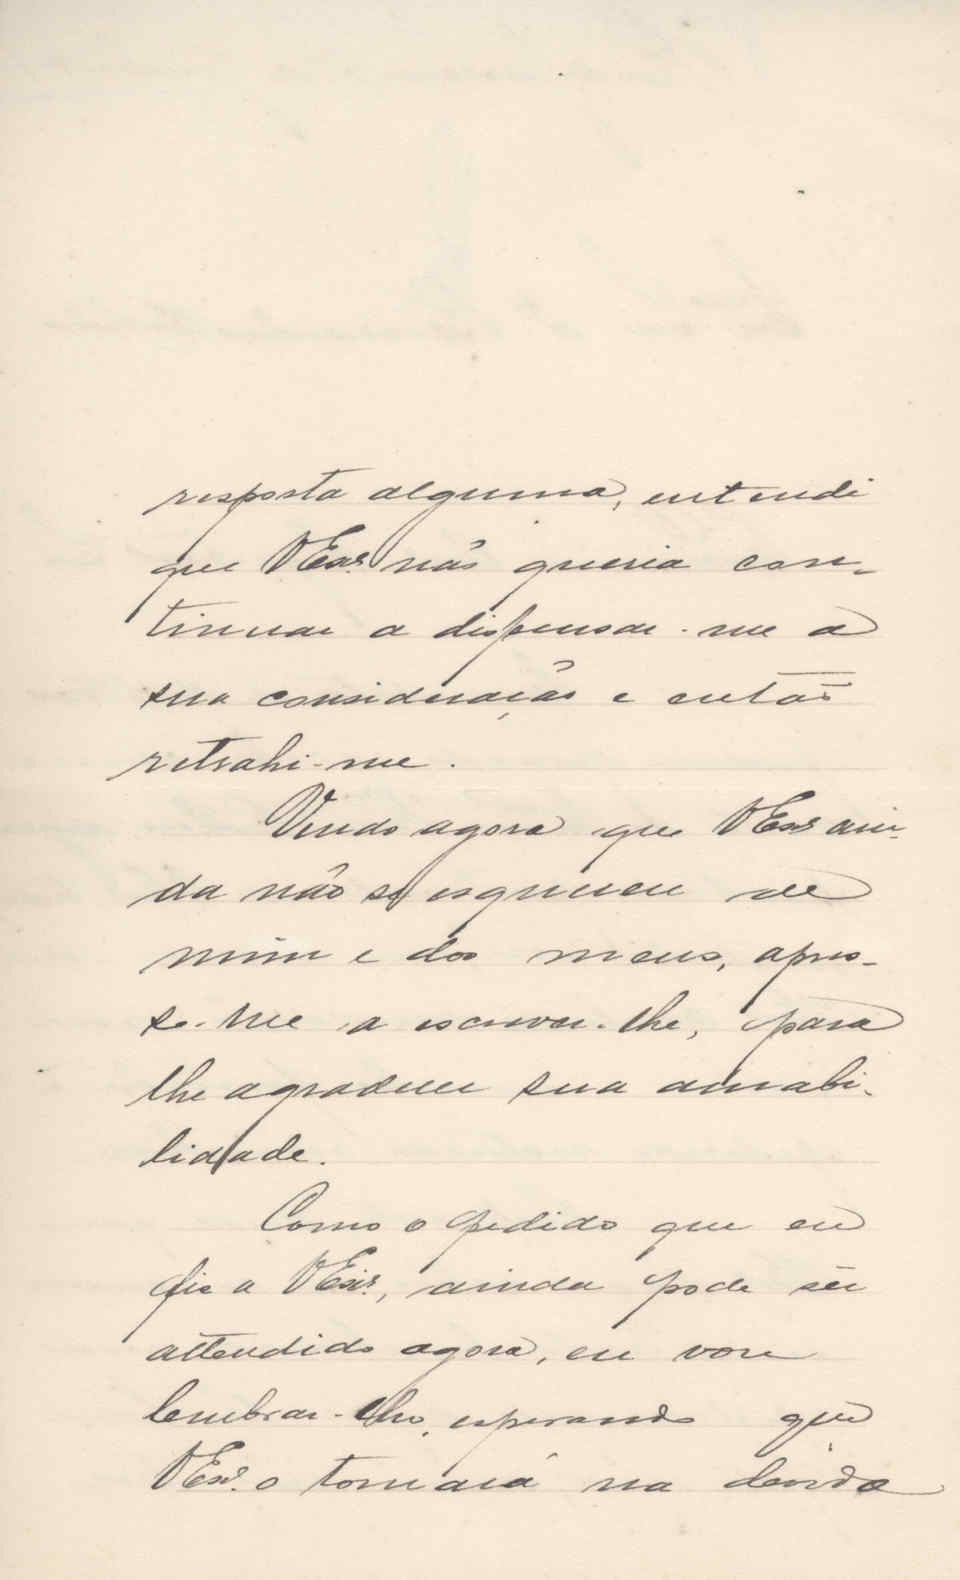 resposta alguma, entendi
que VExª. não queria con-
tinuar a dispensar-me a
sua consideração e então
retrahi-me.
Vendo agora que VExª ain-
da não se esqueceu de
mim e dos meus, apres-
so-me a escrever-lhe, para
lhe agradecer sua amabi-
lidade.
Como o pedido que eu
fiz a VExª, ainda pode ser
attendido agora, eu vou
lembrar-lho, esperando que
VExª. o tomará na devida